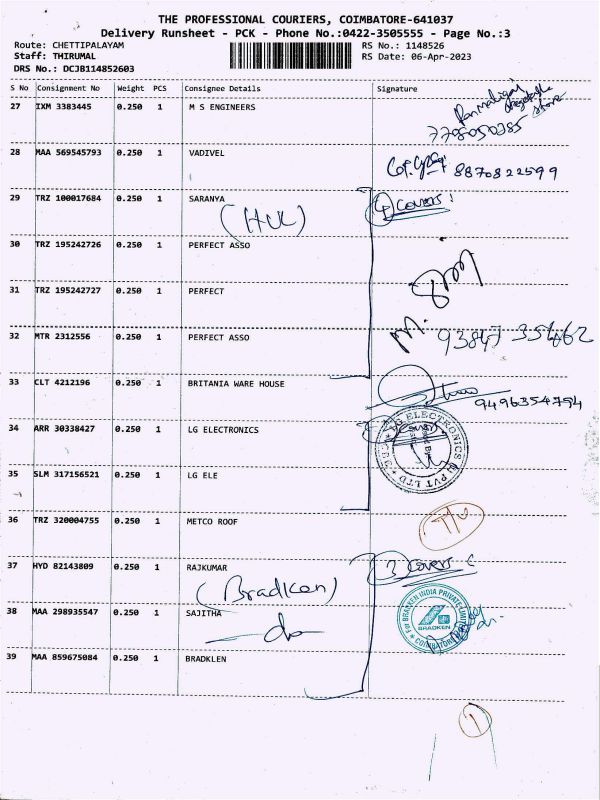 THE PROFESSIONAL COURIERS, COIMBATORE-641037
Delivery Runsheet - PCK - Phone No.:0422-3505555 - Page No.:3
Route: CHETTIPALAYAM RS No.: 1148526
Staff: THIRUMAL RS Date: 06-Apr-2023
DRS No.: DCJB114852603
S No Consignment No Weight PCS Consignee Details Signature
27 IXM 3383445 0.250 1 M S ENGINEERS
7798050385
28 MAA 569545793 0.250 1 VADIVEL
8870822599
29 TRZ 100017684 0.250 1 SARANYA (4) covers
(HUL)
30 TRZ 195242726 0.250 1 PERFECT ASSO
31 TRZ 195242727 0.250 1 PERFECT
32 MTR 2312556 0.250 1 PERFECT ASSO
M.
93847 35462
33 CLT 4212196 0.250 1 BRITANIA WARE HOUSE
9496354794
34 ARR 30338427 0.250 1 LG ELECTRONICS
LG ELECTRONICS (I) PVT LTD
35 SLM 317156521 0.250 1 LG ELE
36 TRZ 320004755 0.250 1 METCO ROOF
37 HYD 82143809 0.250 1 RAJKUMAR (3) covers
(Bradken)
38 MAA 298935547 0.250 1 SAJITHA
do
For BRADKEN INDIA PRIVATE LIMITED
BRADKEN
COIMBATORE
39 MAA 859675084 0.250 1 BRADKLEN
1